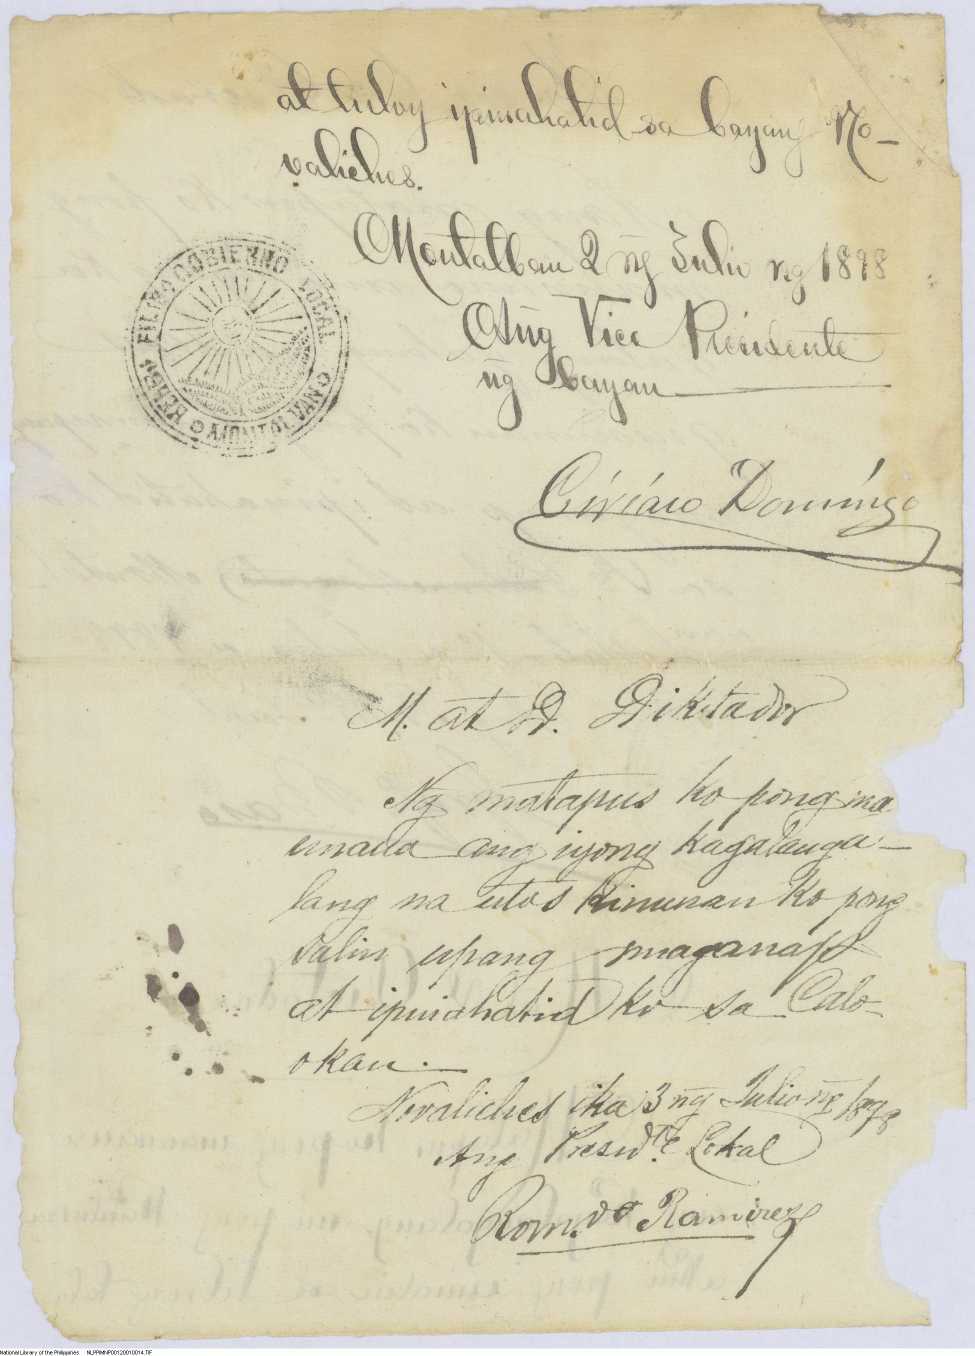 at tuloy ipinahatid sa bayang No-
valiches.
Montalban 2 ng̃ Julio ng̃ 1898
Ang̃ Vice Presidente
ng̃ bayan
GOBIERNO LOCAL
Ciriaco Domingo
M. at D. Diktador
Ng̃ matapus ko pong ma
unaua ang iyong kagalanga-
lang na utos kinunan ko pong
salin upang maganap
at ipinahatid ko sa Calo-
okan.
Novaliches ika 3 ng̃ Julio ng̃ 1898
Ang Presidte Lokal
Rom.do Ramirez
National Library of the Philippines NLPPIMNP00120010014.TIF